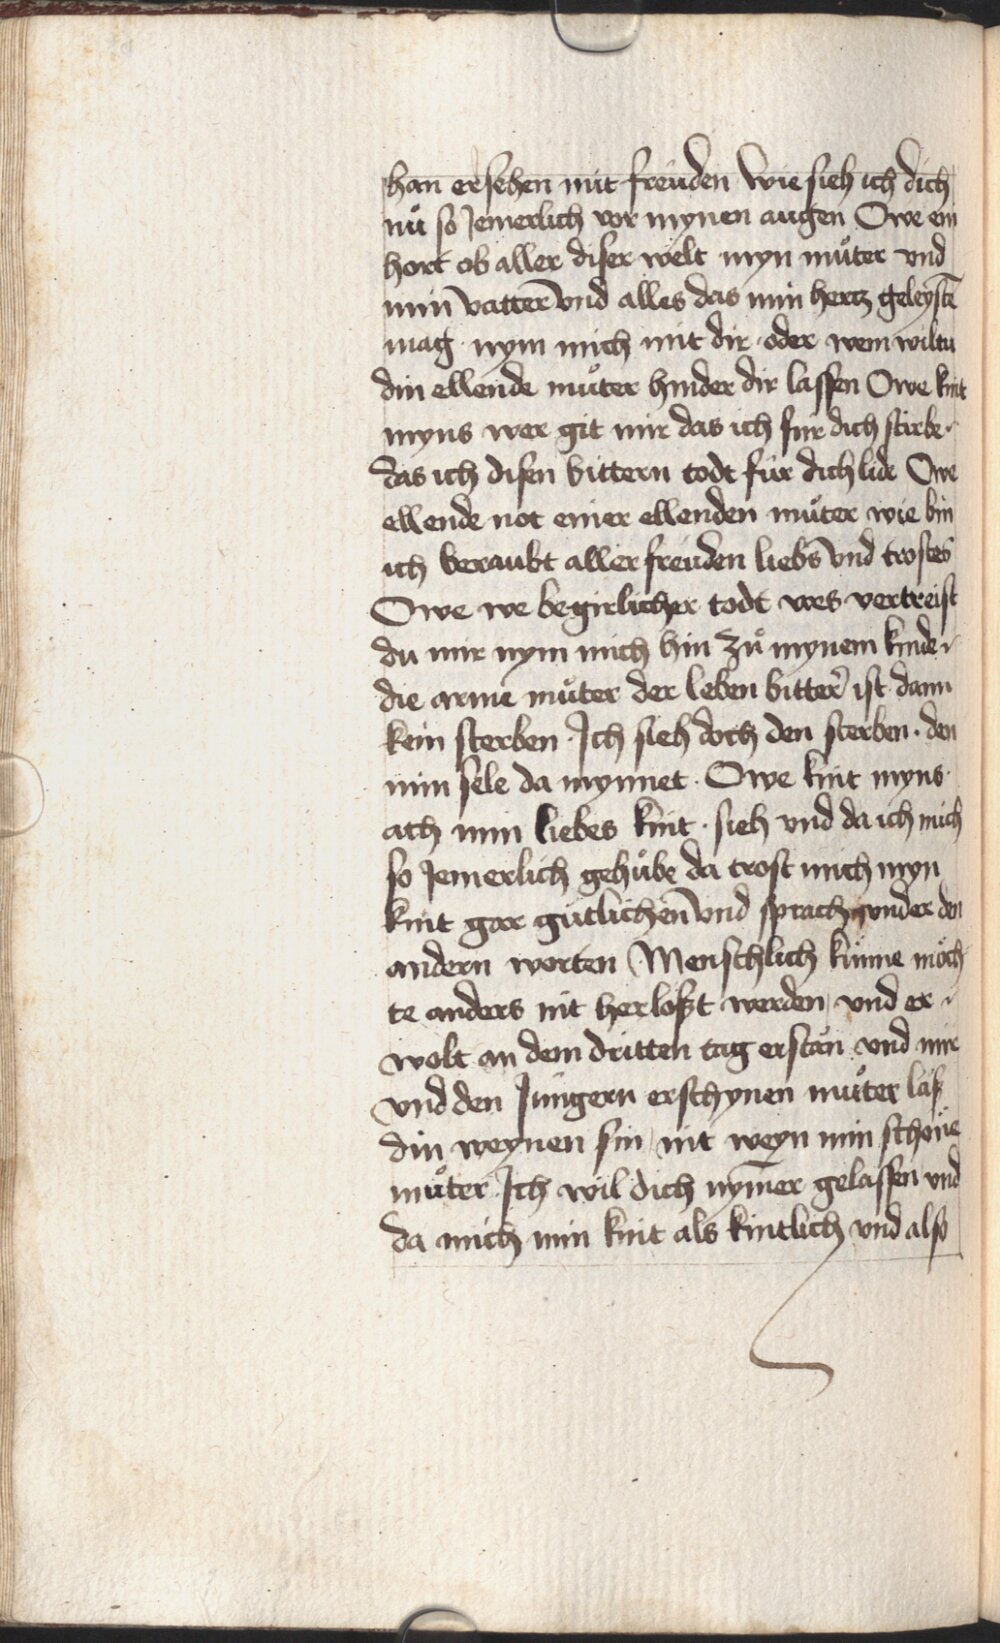 han ersehen mit freüden Wie sieh ich dich
nuͦ so Jemerlich vor mynen augen Owe ein
hort ob aller diser welt myn muͦter vnd
min vatter vnd alles das min hertz geleyste᷑
mag · nym mich mit dir · oder wem wiltu
din ellende muͦter hinder dir lassen Owe kint
myns wer git mir das ich fur dich stirbe ·
das ich disen bittern todt für dich lide Owe
ellende not einer ellenden muͦter wie bin
ich beraubt aller freüden liebs vnd trostes
Owe we begirlicher todt wes vertreist
du mir nym mich hin zuͦ mynem kinde ·
die arme muͦter der leben bitter ist dann
kein sterben · Ich sieh doch den sterben · den
min sele da mynnet · Owe kint myns ·
ach min liebes kint · sieh vnd da ich mich
so Jemerlich gehuͦbe da trost mich myn
kint gar gütlichen vnd sprach vnder den
andern worten Menschlich künne möch
te anders nit herlößt werden vnd er
wolt an dem dritten tag erstan vnd mir
vnd den Jungern erschynen muͦter laß
din weynen sin nit weyn min schöne
muͦter Ich wil dich nym̄er gelassen vnd
da mich min kint als kintlich vnd also